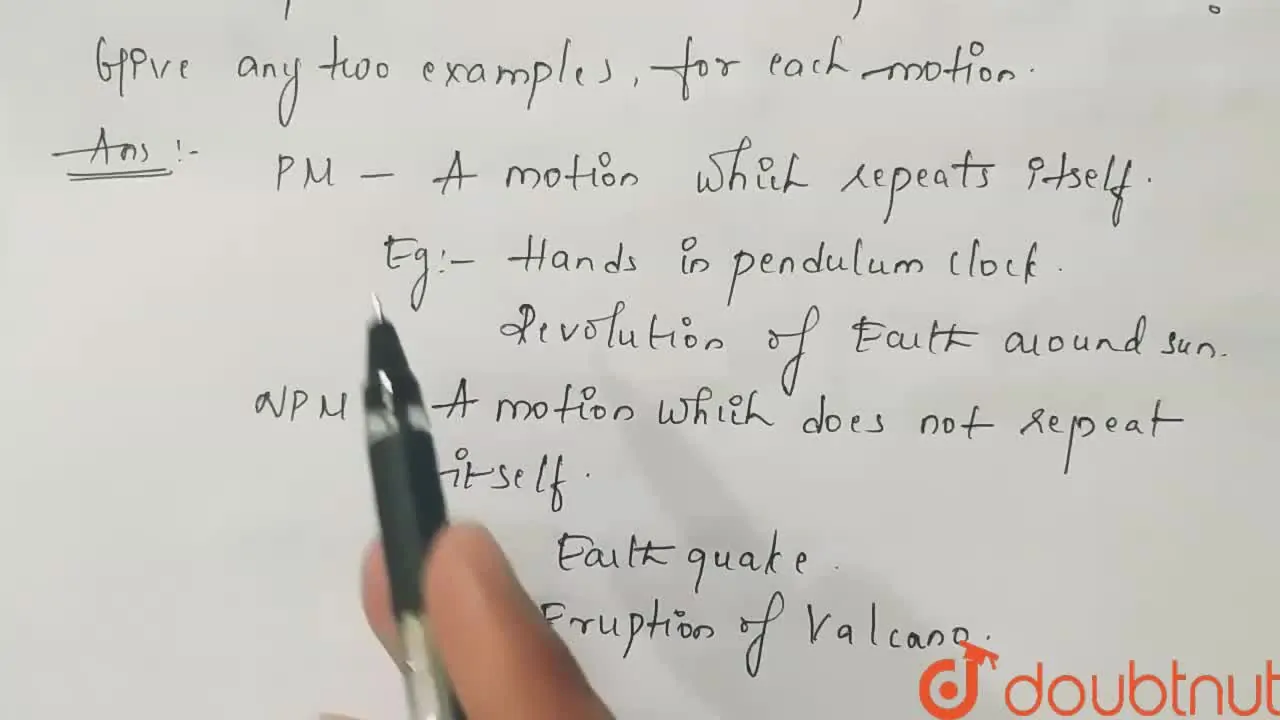 Give any two examples, for each motion.
Ans :-
PM - A motion which repeats itself.
Eg:- Hands in pendulum clock.
Revolution of Earth around sun.
NPM A motion which does not repeat
itself.
Earth quake.
Eruption of Valcano.
doubtnut